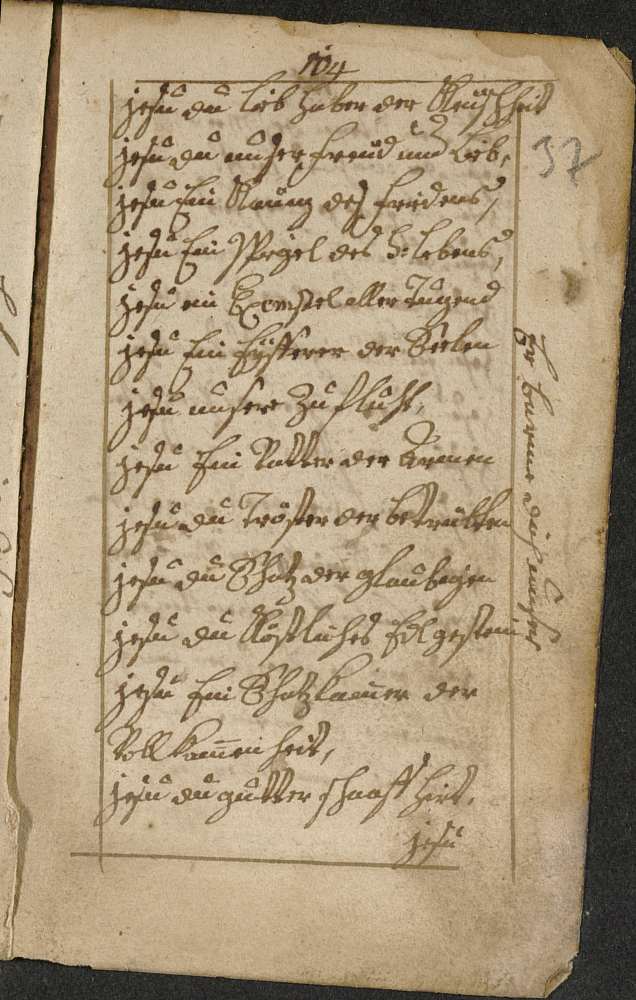 104
jesu du lieb haber der Keuschheit
37
jesu du unser freüd und Lieb,
jesu Ein König des fridens,
jesu Ein Spiegel des h: lebens,
jesu ein Exempel aller Tugend
jesu Ein Eyfferer der Seelen
jesu unsere Zuflucht,
jesu Ein Vatter der Armen
jesu du Tröster der betrübten
jesu du Schatz der glaubigen
jesu du Köstliches Edlgestein
jesu Ein Schatzkamer der
Vollkomenheit,
jesu du gutter schaaff hirt,
jesu
Er barme dich unser